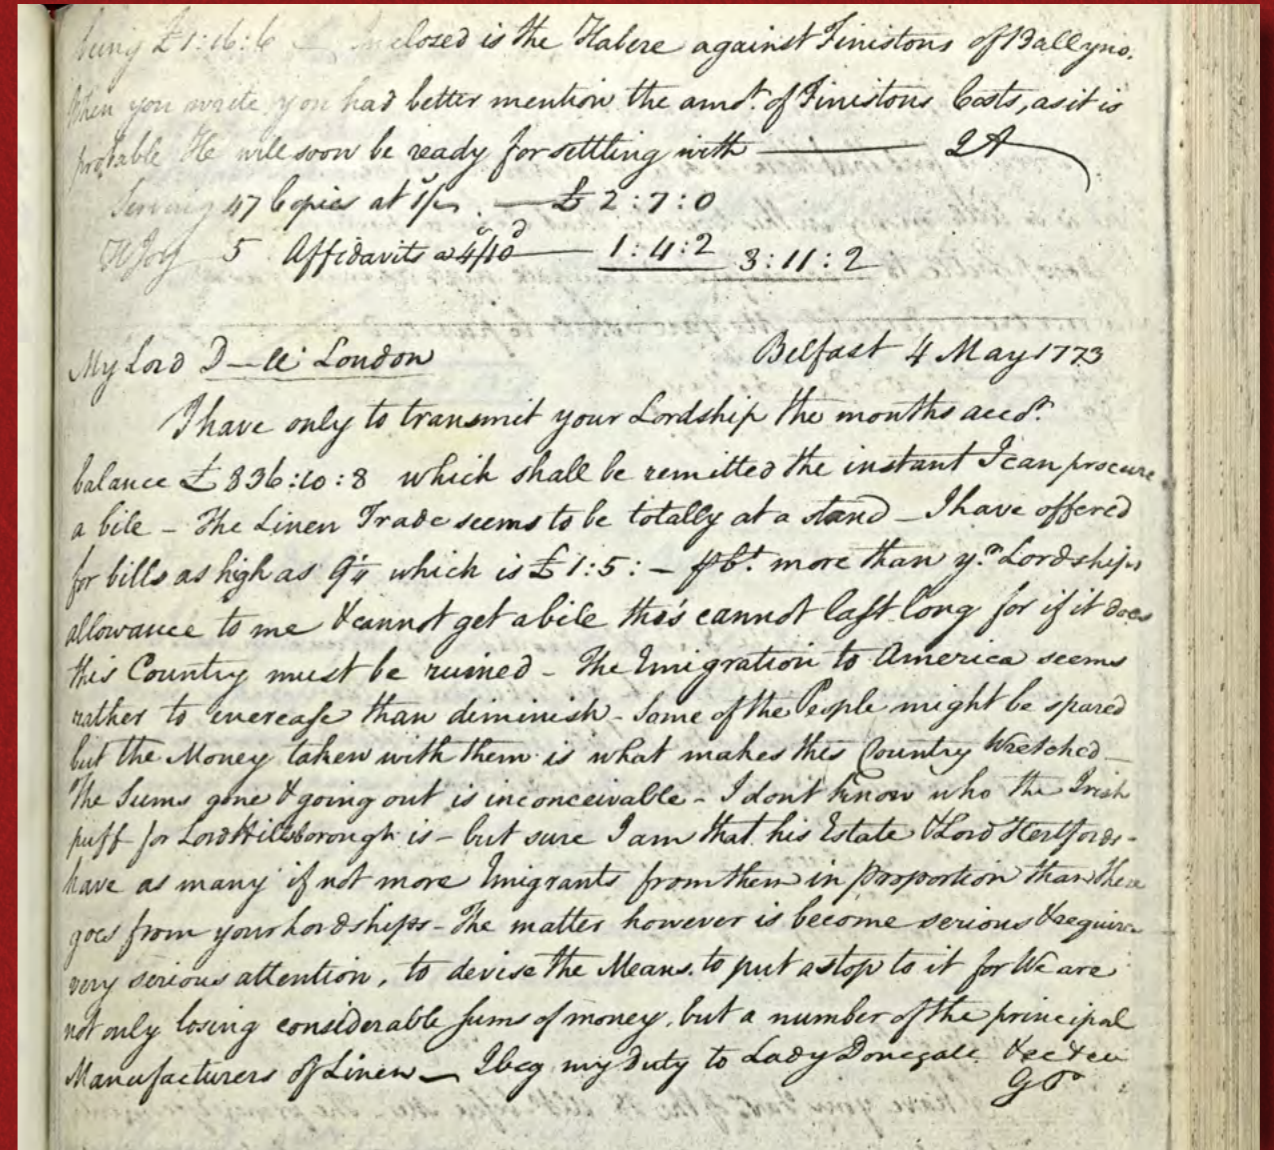 being £1:16:6 — Inclosed is the Habere against Finistons of Ballyno.
When you write you had better mention the amot. of Finistons Costs, as it is
probable He will soon be ready for settling with —
Serving 47 Copies at 1/ — £2:7:0
5 Affidavits a 4/10d — 1:4:2 3:11:2
My Lord D—ll London Belfast 4 May 1773
I have only to transmit your Lordship the months accot.
balance £836:10:8 which shall be remitted the instant I can procure
a bile – The Linen Trade seems to be totally at a stand – I have offered
for bills as high as 9¼ which is £1:5:– ⅌ Ct. more than yr. Lordships
allowance to me & cannot get a bile this cannot last long for if it does
this Country must be ruined – The Emigration to America seems
rather to encrease than diminish – Some of the People might be spared
but the Money taken with them is what makes this Country Wretched –
The Sums gone & going out is inconceivable – I dont know who the Irish
puff for Lord Hillsborough is – but sure I am that his Estate & Lord Hertfords –
have as many if not more Emigrants from them in proportion than there
goes from your Lordships – The matter however is become serious & requires
very serious attention, to devise the Means to put a stop to it for We are
not only losing considerable sums of money, but a number of the principal
Manufacturers of Linen – I beg my Duty to Lady Donegall &c &c
GP